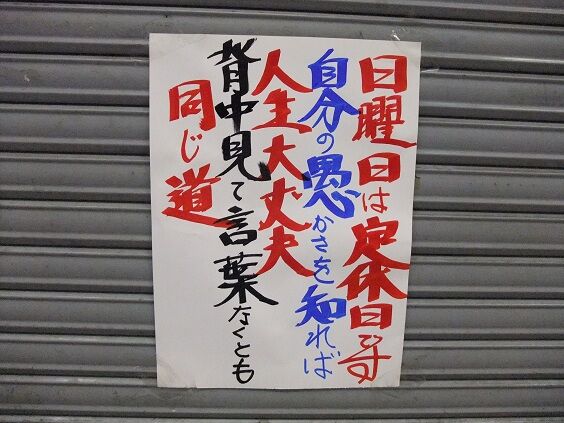 日曜日は定休日です
自分の愚かさを知れば
人生大丈夫
背中見て言葉なくとも
同じ道